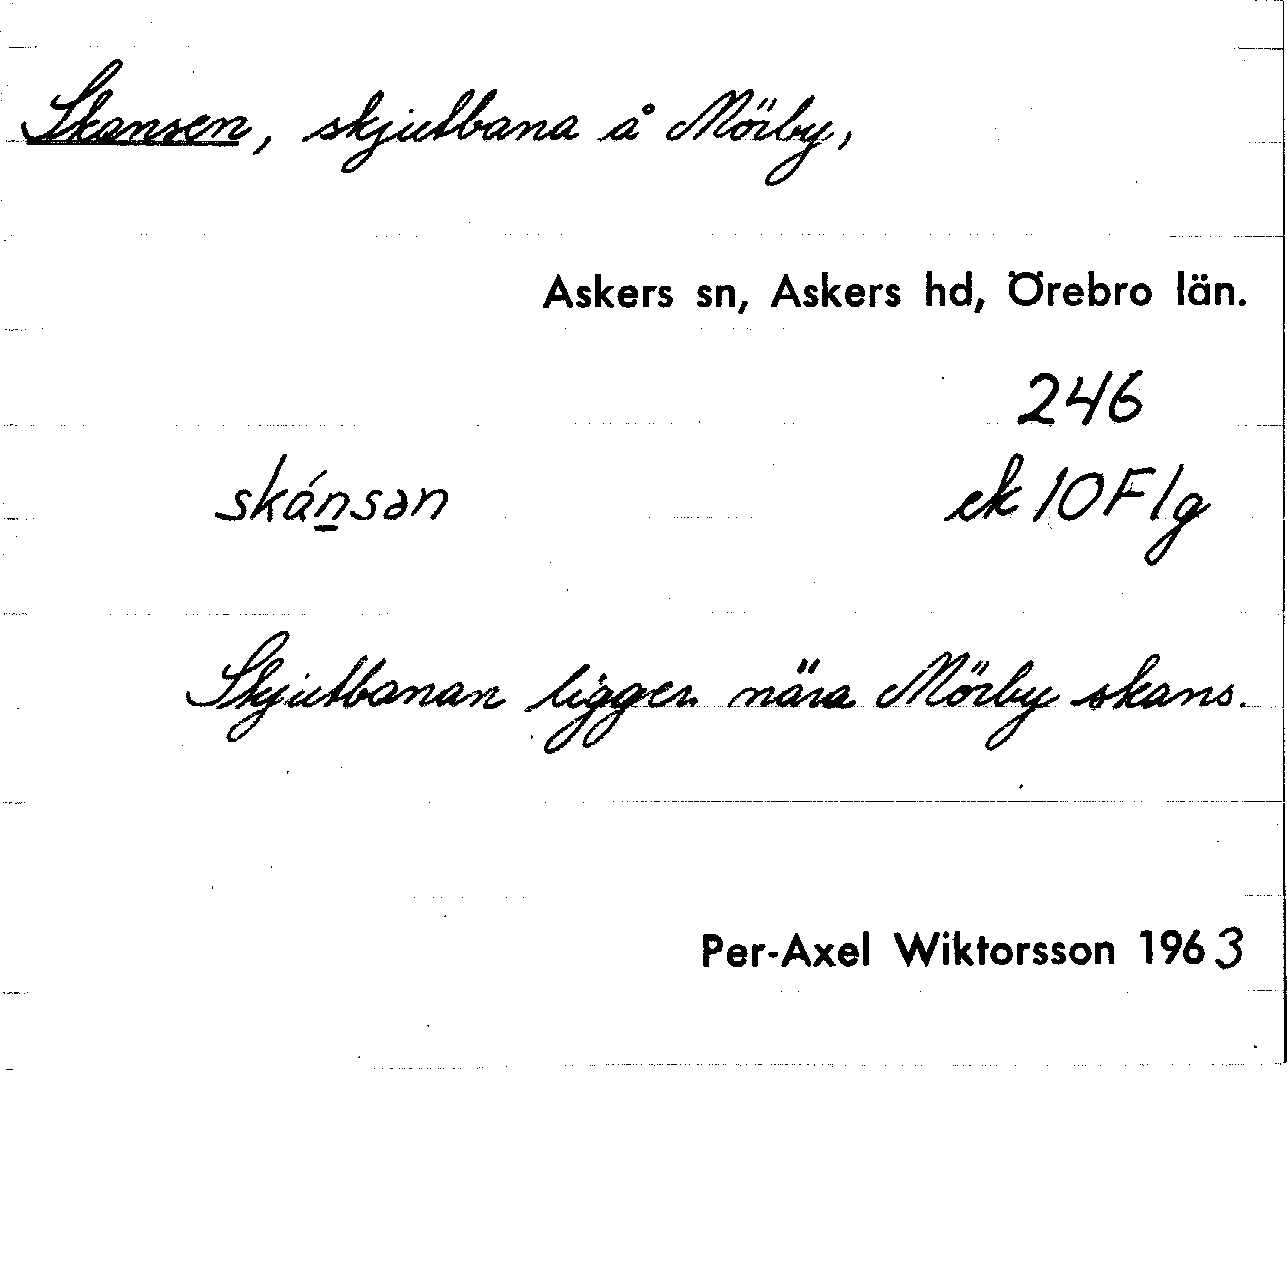 Skansen, skjutbana å Mörby,
Askers sn, Askers hd, Örebro län.
246
skánsən ek 10F1g
Skjutbanan ligger nära Mörby skans.
Per-Axel Wiktorsson 1963